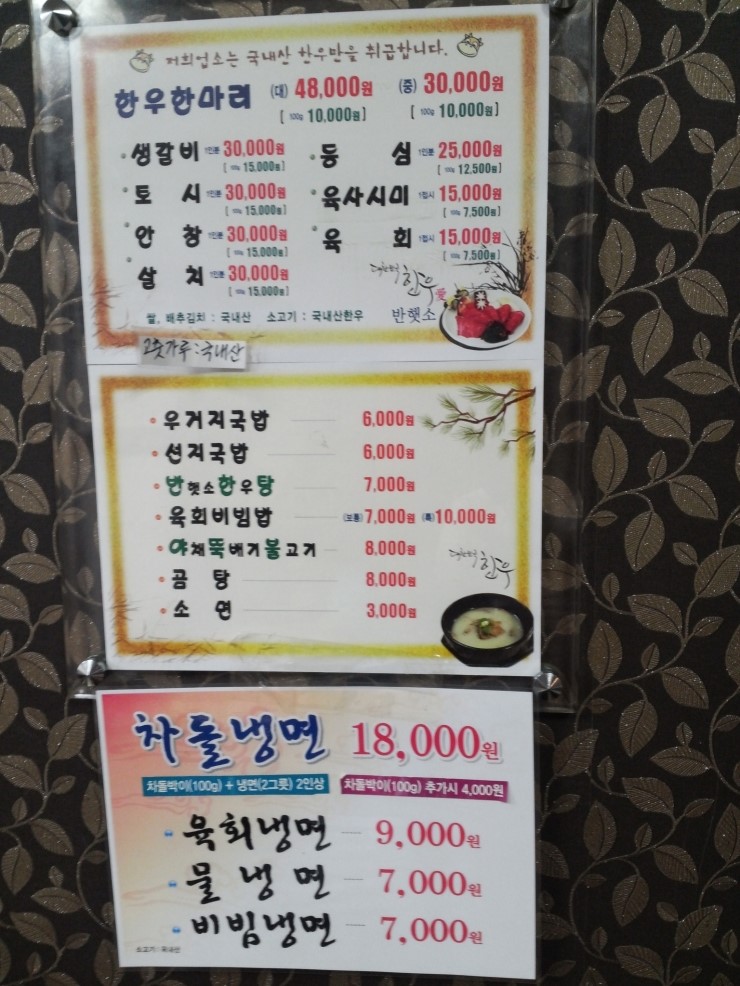 저희업소는 국내산 한우만을 취급합니다.
한우한마리 (대) 48,000원 (중) 30,000원
[ 100g 10,000원 ] [ 100g 10,000원 ]
생갈비 1인분 30,000원 등 심 1인분 25,000원
[ 100g 15,000원 ] [ 100g 12,500원 ]
토 시 1인분 30,000원 육사시미 1접시 15,000원
[ 100g 15,000원 ] [ 100g 7,500원 ]
안 창 1인분 30,000원 육 회 1접시 15,000원
[ 100g 15,000원 ] [ 100g 7,500원 ]
살 치 1인분 30,000원
[ 100g 15,000원 ]
한우
쌀, 배추김치 : 국내산 소고기 : 국내산한우 반햇소
고춧가루 : 국내산
우거지국밥 6,000원
선지국밥 6,000원
반햇소한우탕 7,000원
육회비빔밥 (보통) 7,000원 (특) 10,000원
야채뚝배기불고기 8,000원
한우
곰 탕 8,000원
소 연 3,000원
차돌냉면 18,000원
차돌박이(100g) + 냉면(2그릇) 2인상 차돌박이(100g) 추가시 4,000원
육회냉면 9,000원
물 냉 면 7,000원
비빔냉면 7,000원
소고기 : 국내산